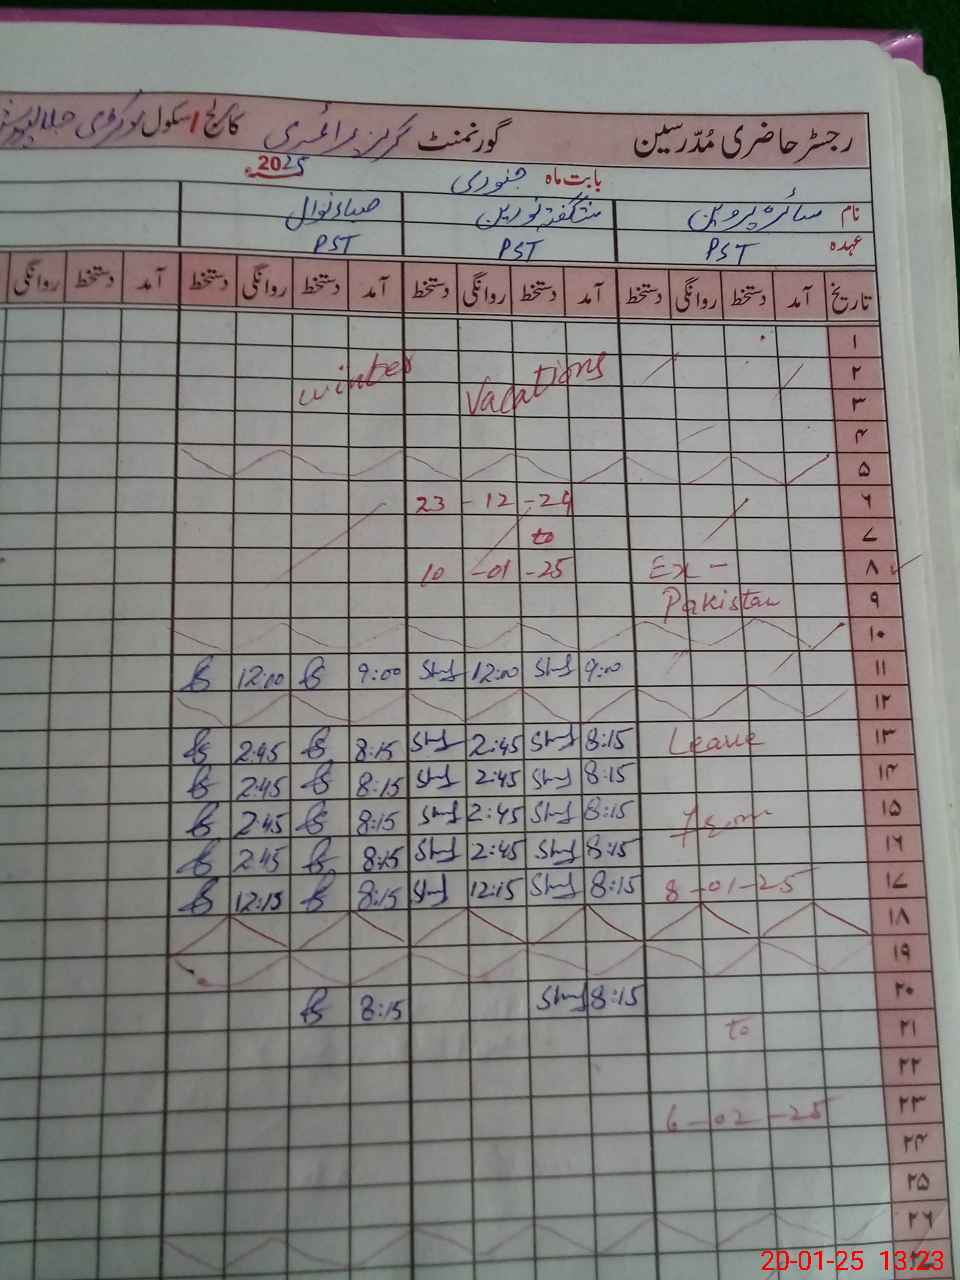 رجسٹر حاضری مُدّرسین گورنمنٹ گرلز پرائمری سکول
بابت ماہ جنوری 2025
نام سائرہ پروین شگفتہ نورین صباء نوال
عہدہ PST PST PST
تاریخ آمد دستخط روانگی دستخط آمد دستخط روانگی دستخط آمد دستخط روانگی دستخط آمد دستخط روانگی
۱
۲ Winter Vacations
۳
۴
۵
۶ 23 - 12 - 24
۷ to
۸ 10 - 01 - 25 Ex -
۹ Pakistan
۱۰
۱۱ 9:00 12:00 9:00 12:00
۱۲
۱۳ Leave 8:15 2:45 8:15 2:45
۱۴ 8:15 2:45 8:15 2:45
۱۵ From 8:15 2:45 8:15 2:45
۱۶ 8:15 2:45 8:15 2:45
۱۷ 8-01-25 8:15 12:15 8:15 12:15
۱۸
۱۹
۲۰ 8:15 8:15
۲۱ to
۲۲
۲۳ 6-02-25
۲۴
۲۵
۲۶
20-01-25 13:23